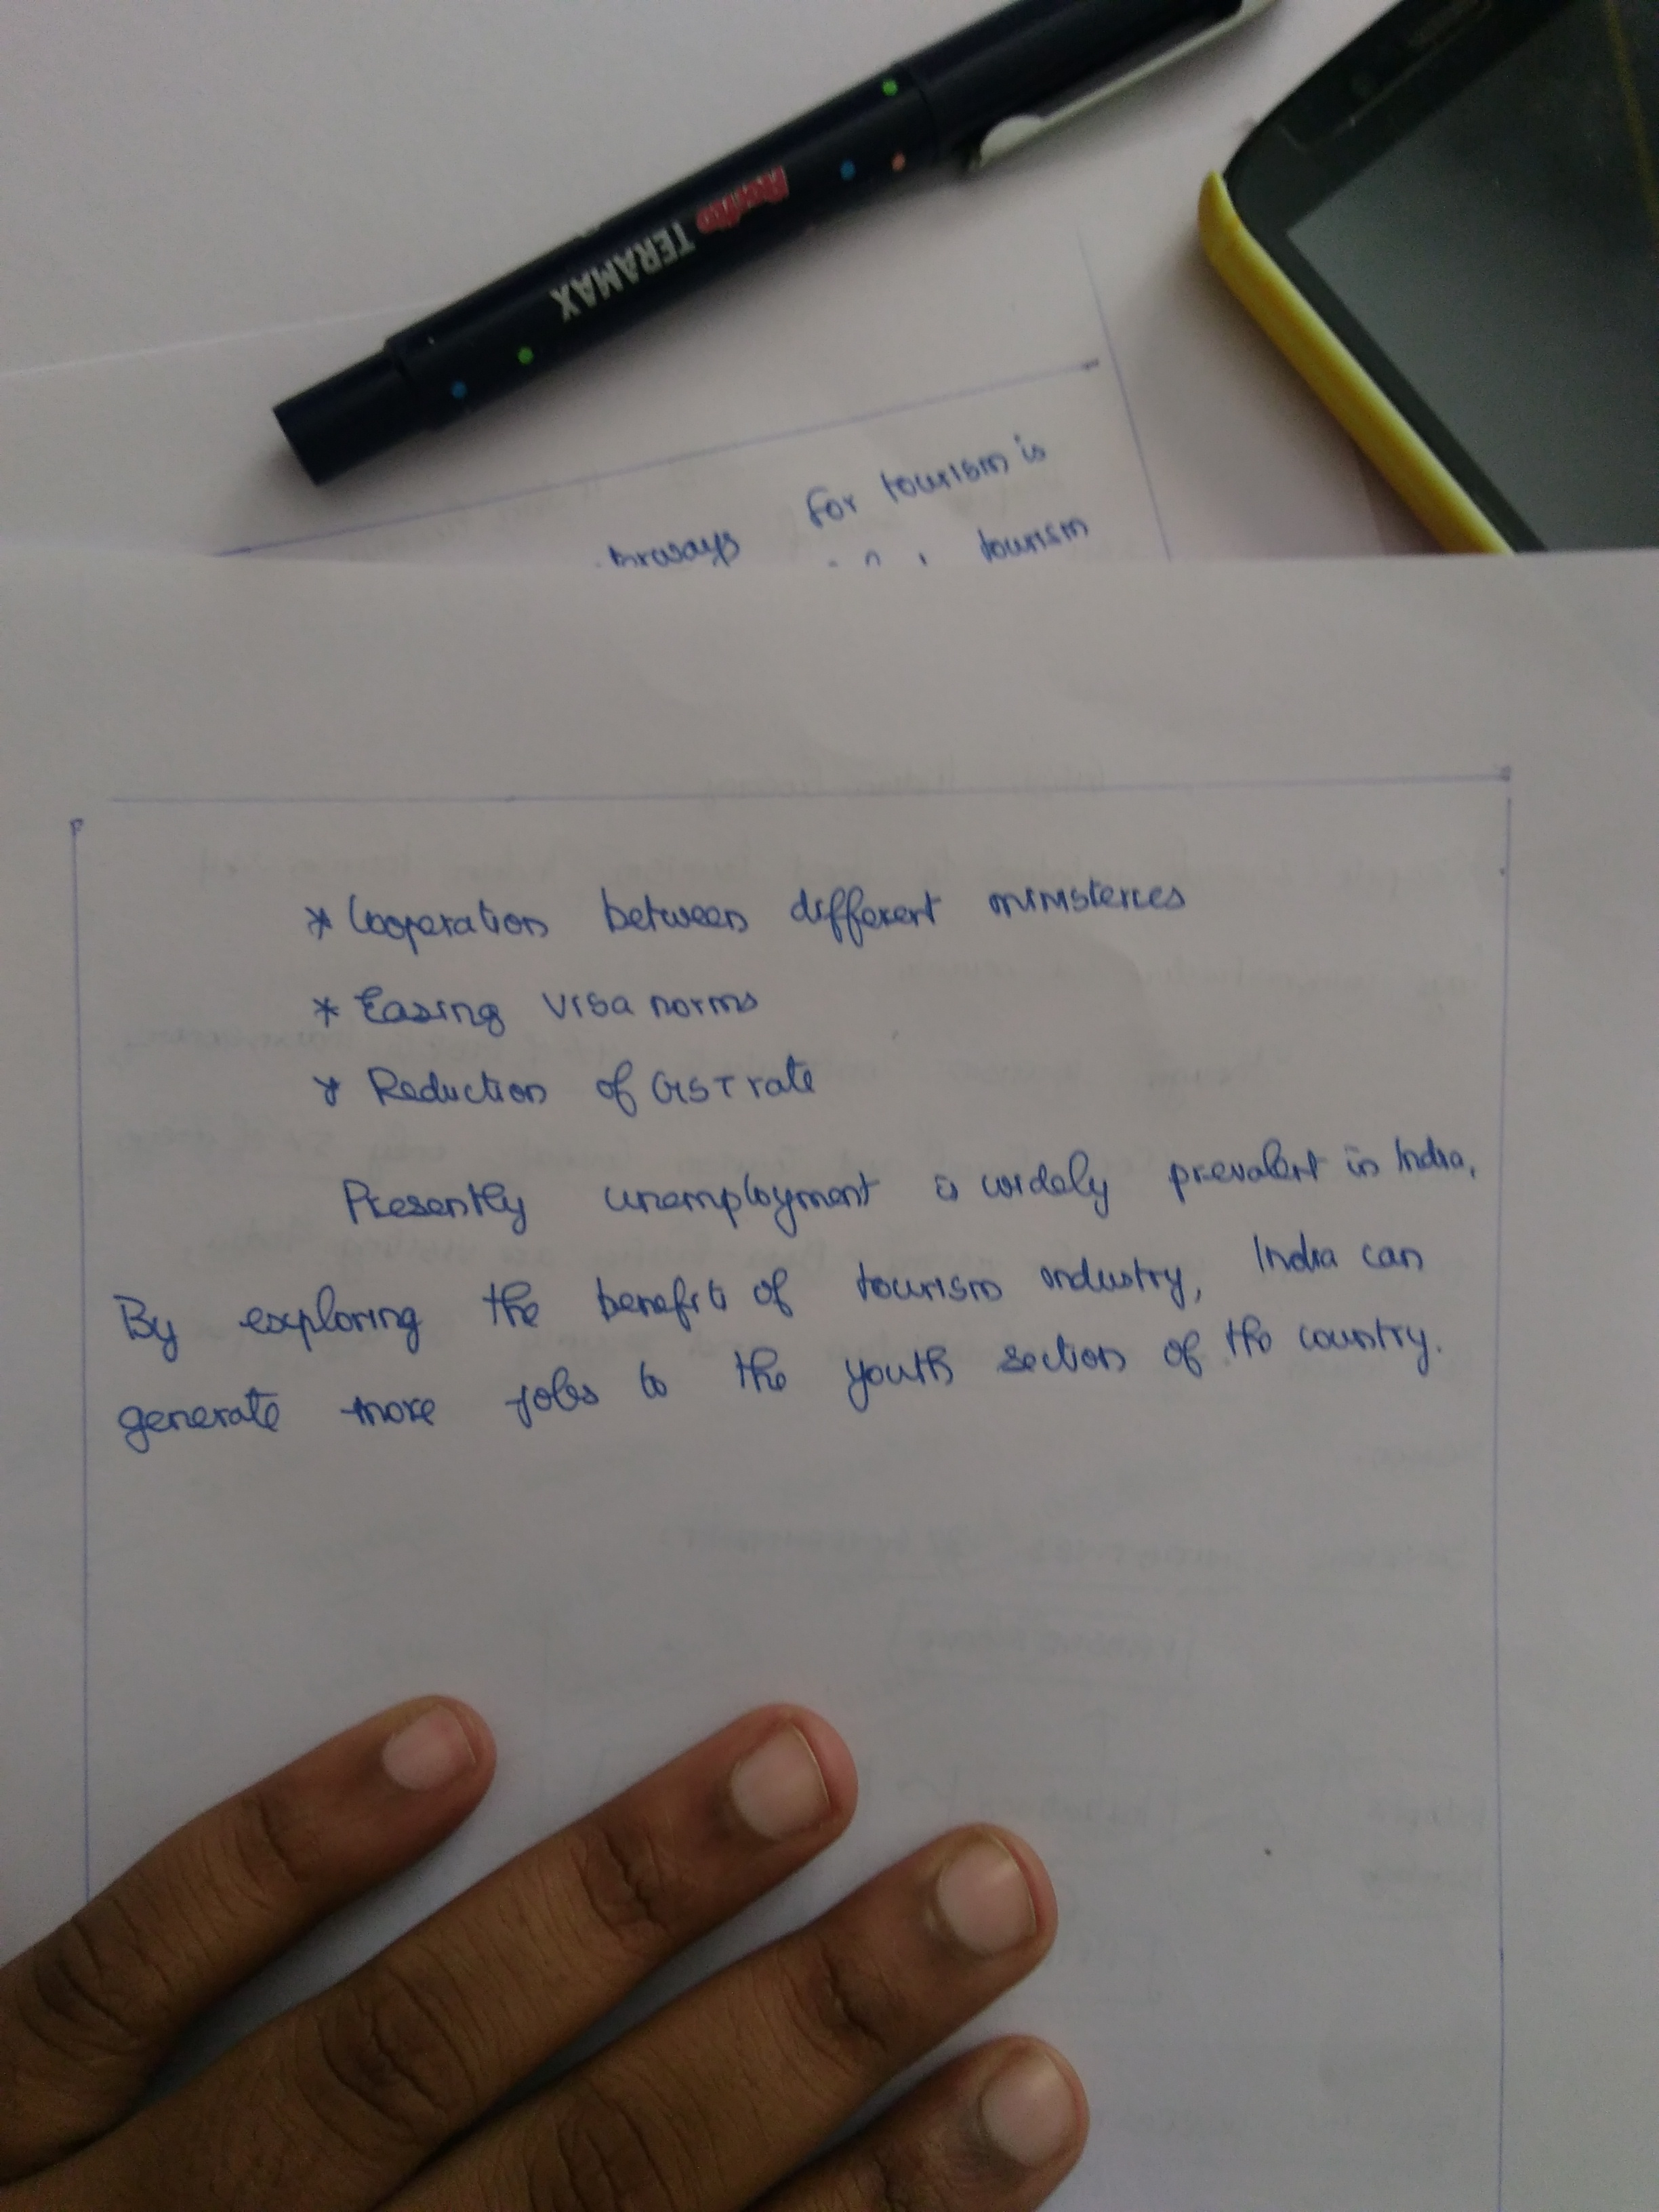 Rorito TERAMAX
for tourism is
tourism
* Cooperation between different ministeries
* Easing visa norms
* Reduction of GST rate
Presently unemployment is widely prevalent in India,
By exploring the benefits of tourism industry, India can
generate more jobs to the youth section of the country.